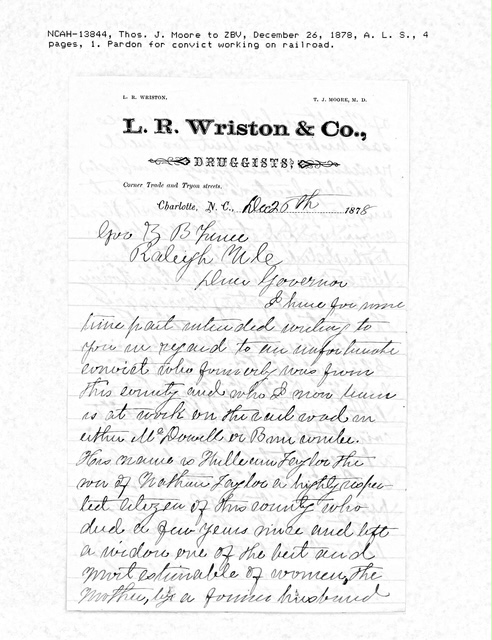 NCAH-13844, Thos. J. Moore to ZBV, December 26, 1878, A. L. S., 4
pages, 1. Pardon for convict working on railroad.
L. R. WRISTON.
T. J. MOORE, M. D.
L. R. Wriston & Co.,
DRUGGISTS,
Corner Trade and Tryon streets.
Charlotte, N. C., Dec 26th 1878
Gov Z B Vance
Raleigh N C
Dear Governor
I have for some
time past intended writing to
you in regard to an unfortunate
convict who formerly was from
this county and who I now learn
is at work on the rail road in
either McDowell or Buncombe.
His name is William Taylor the
son of Nathan Taylor a highly respec-
ted citizen of this county who
died a few years since and left
a widow one of the best and
most estimable of women, the
Mother, by a former husband